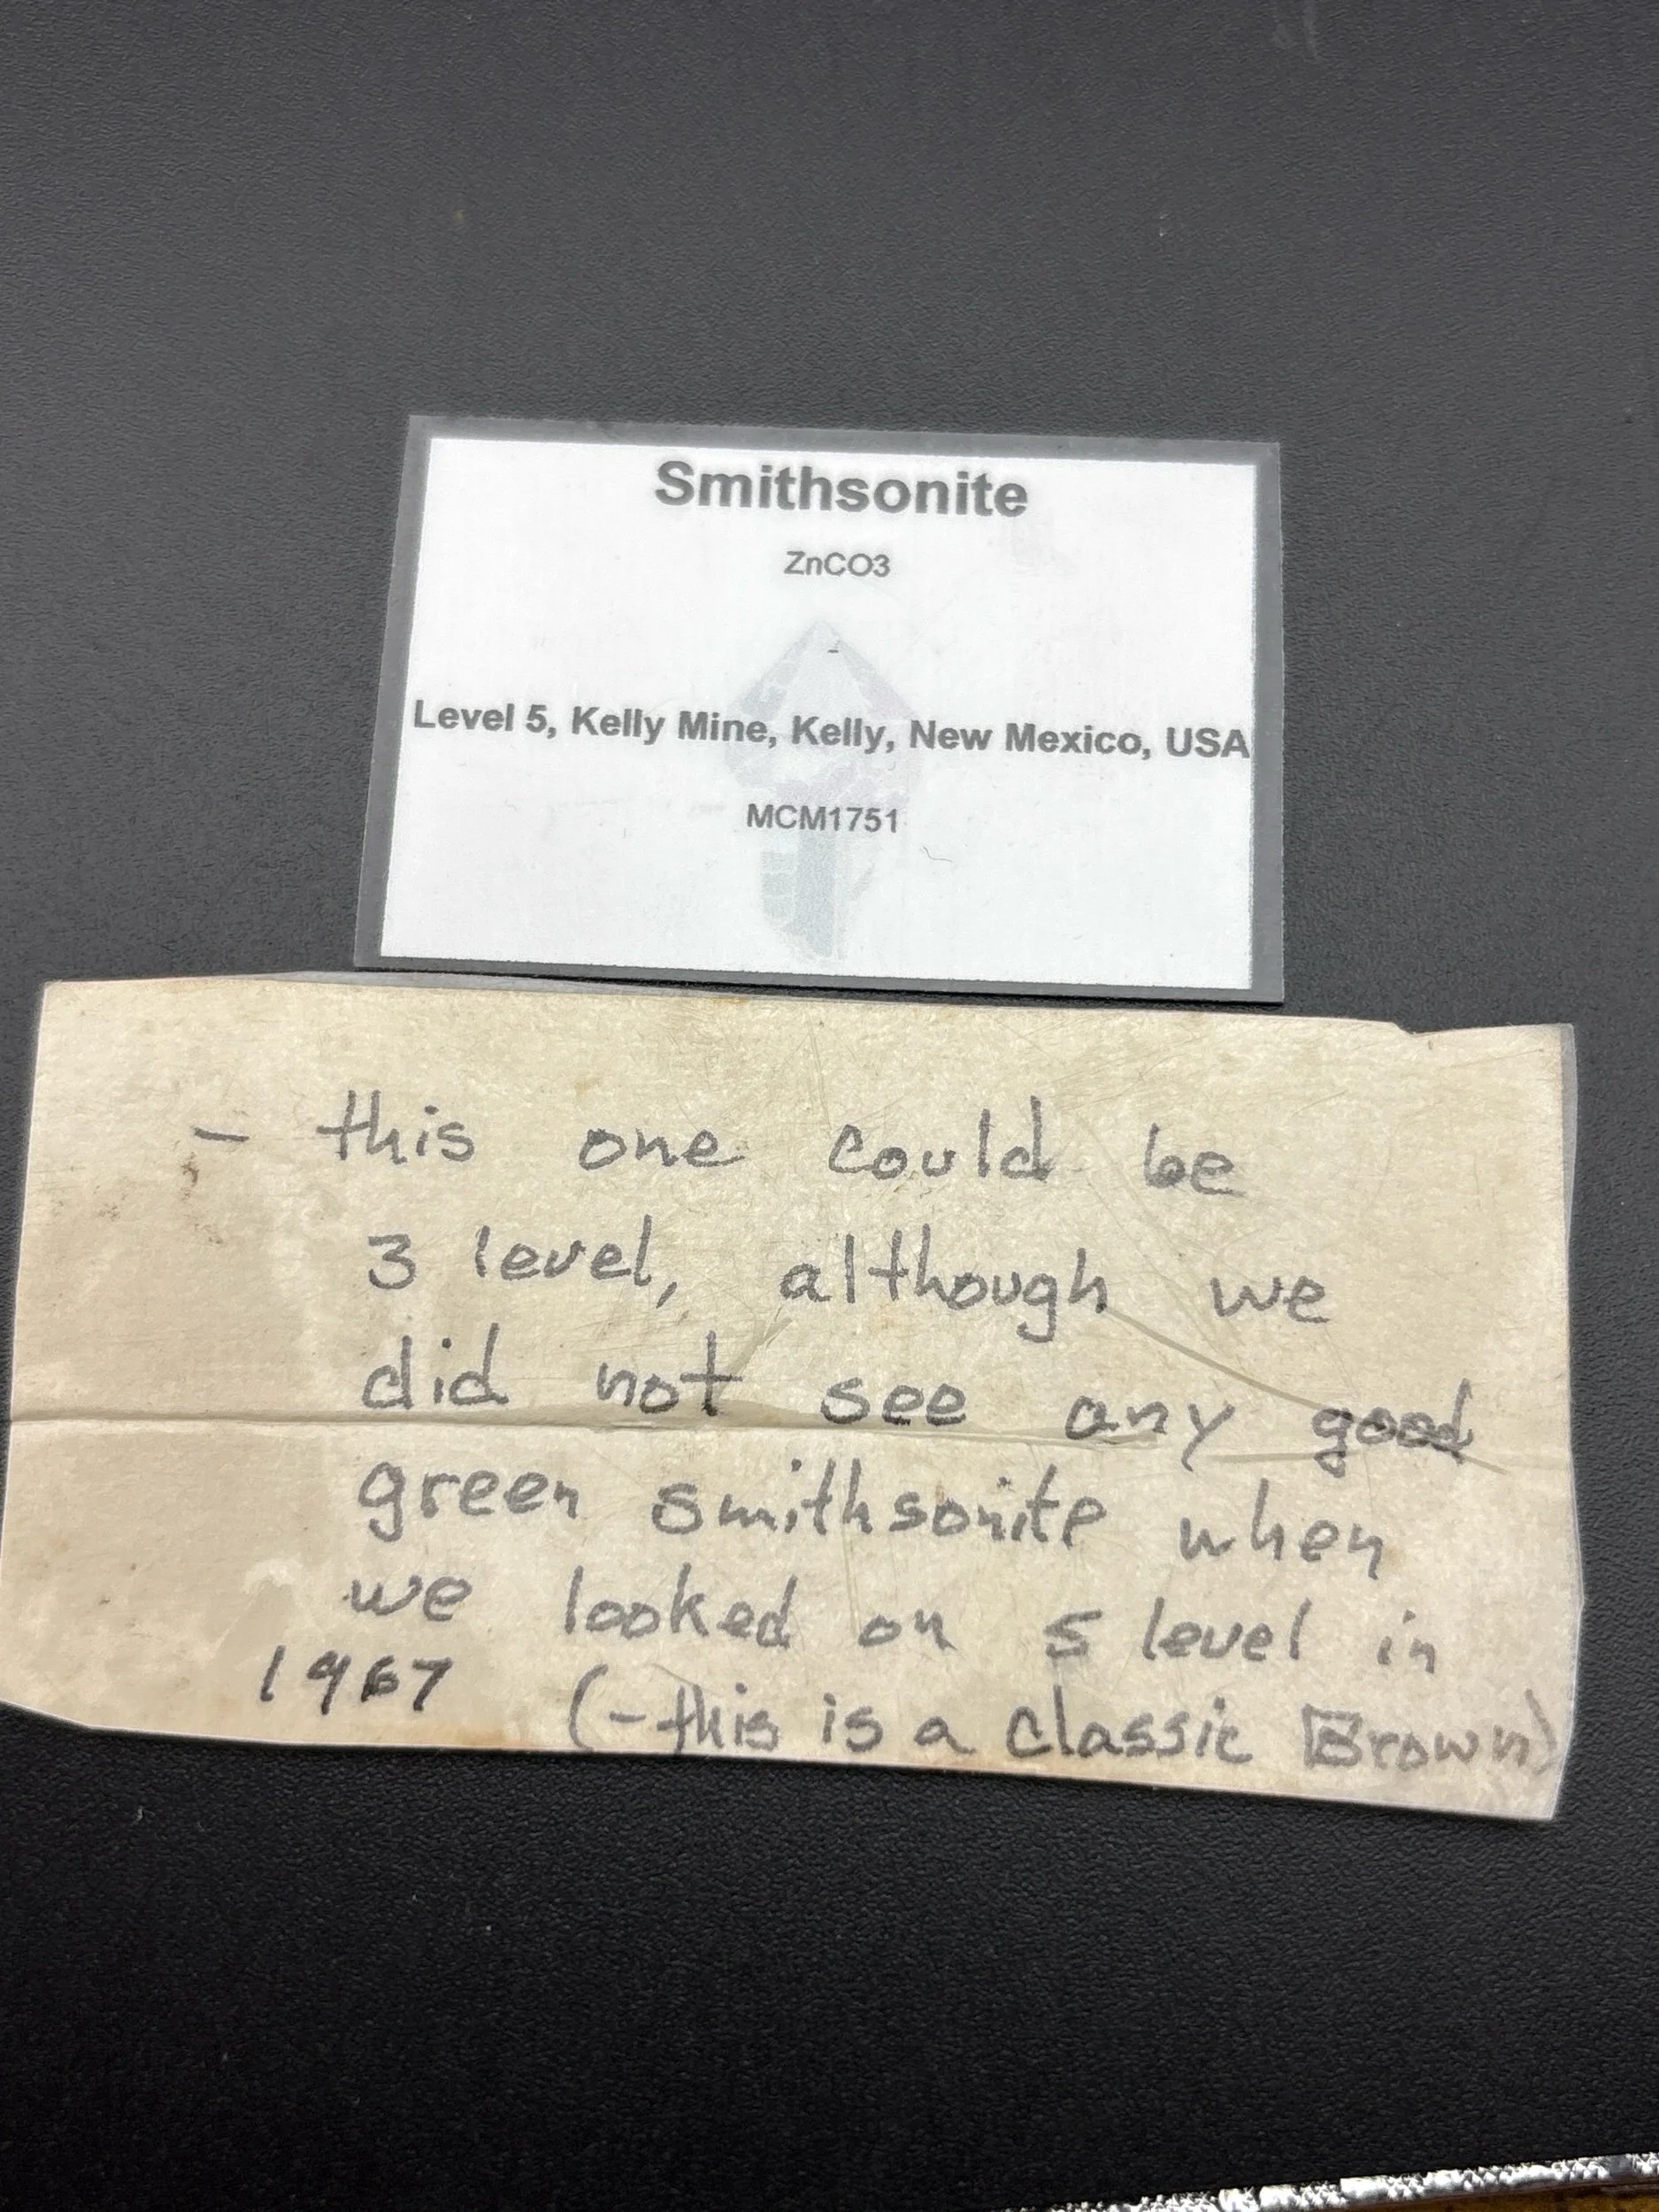 Smithsonite
ZnCO3
-
Level 5, Kelly Mine, Kelly, New Mexico, USA
MCM1751
- this one could be
3 level, although we
did not see any good
green smithsonite when
we looked on 5 level in
1967 (- this is a classic Brown)